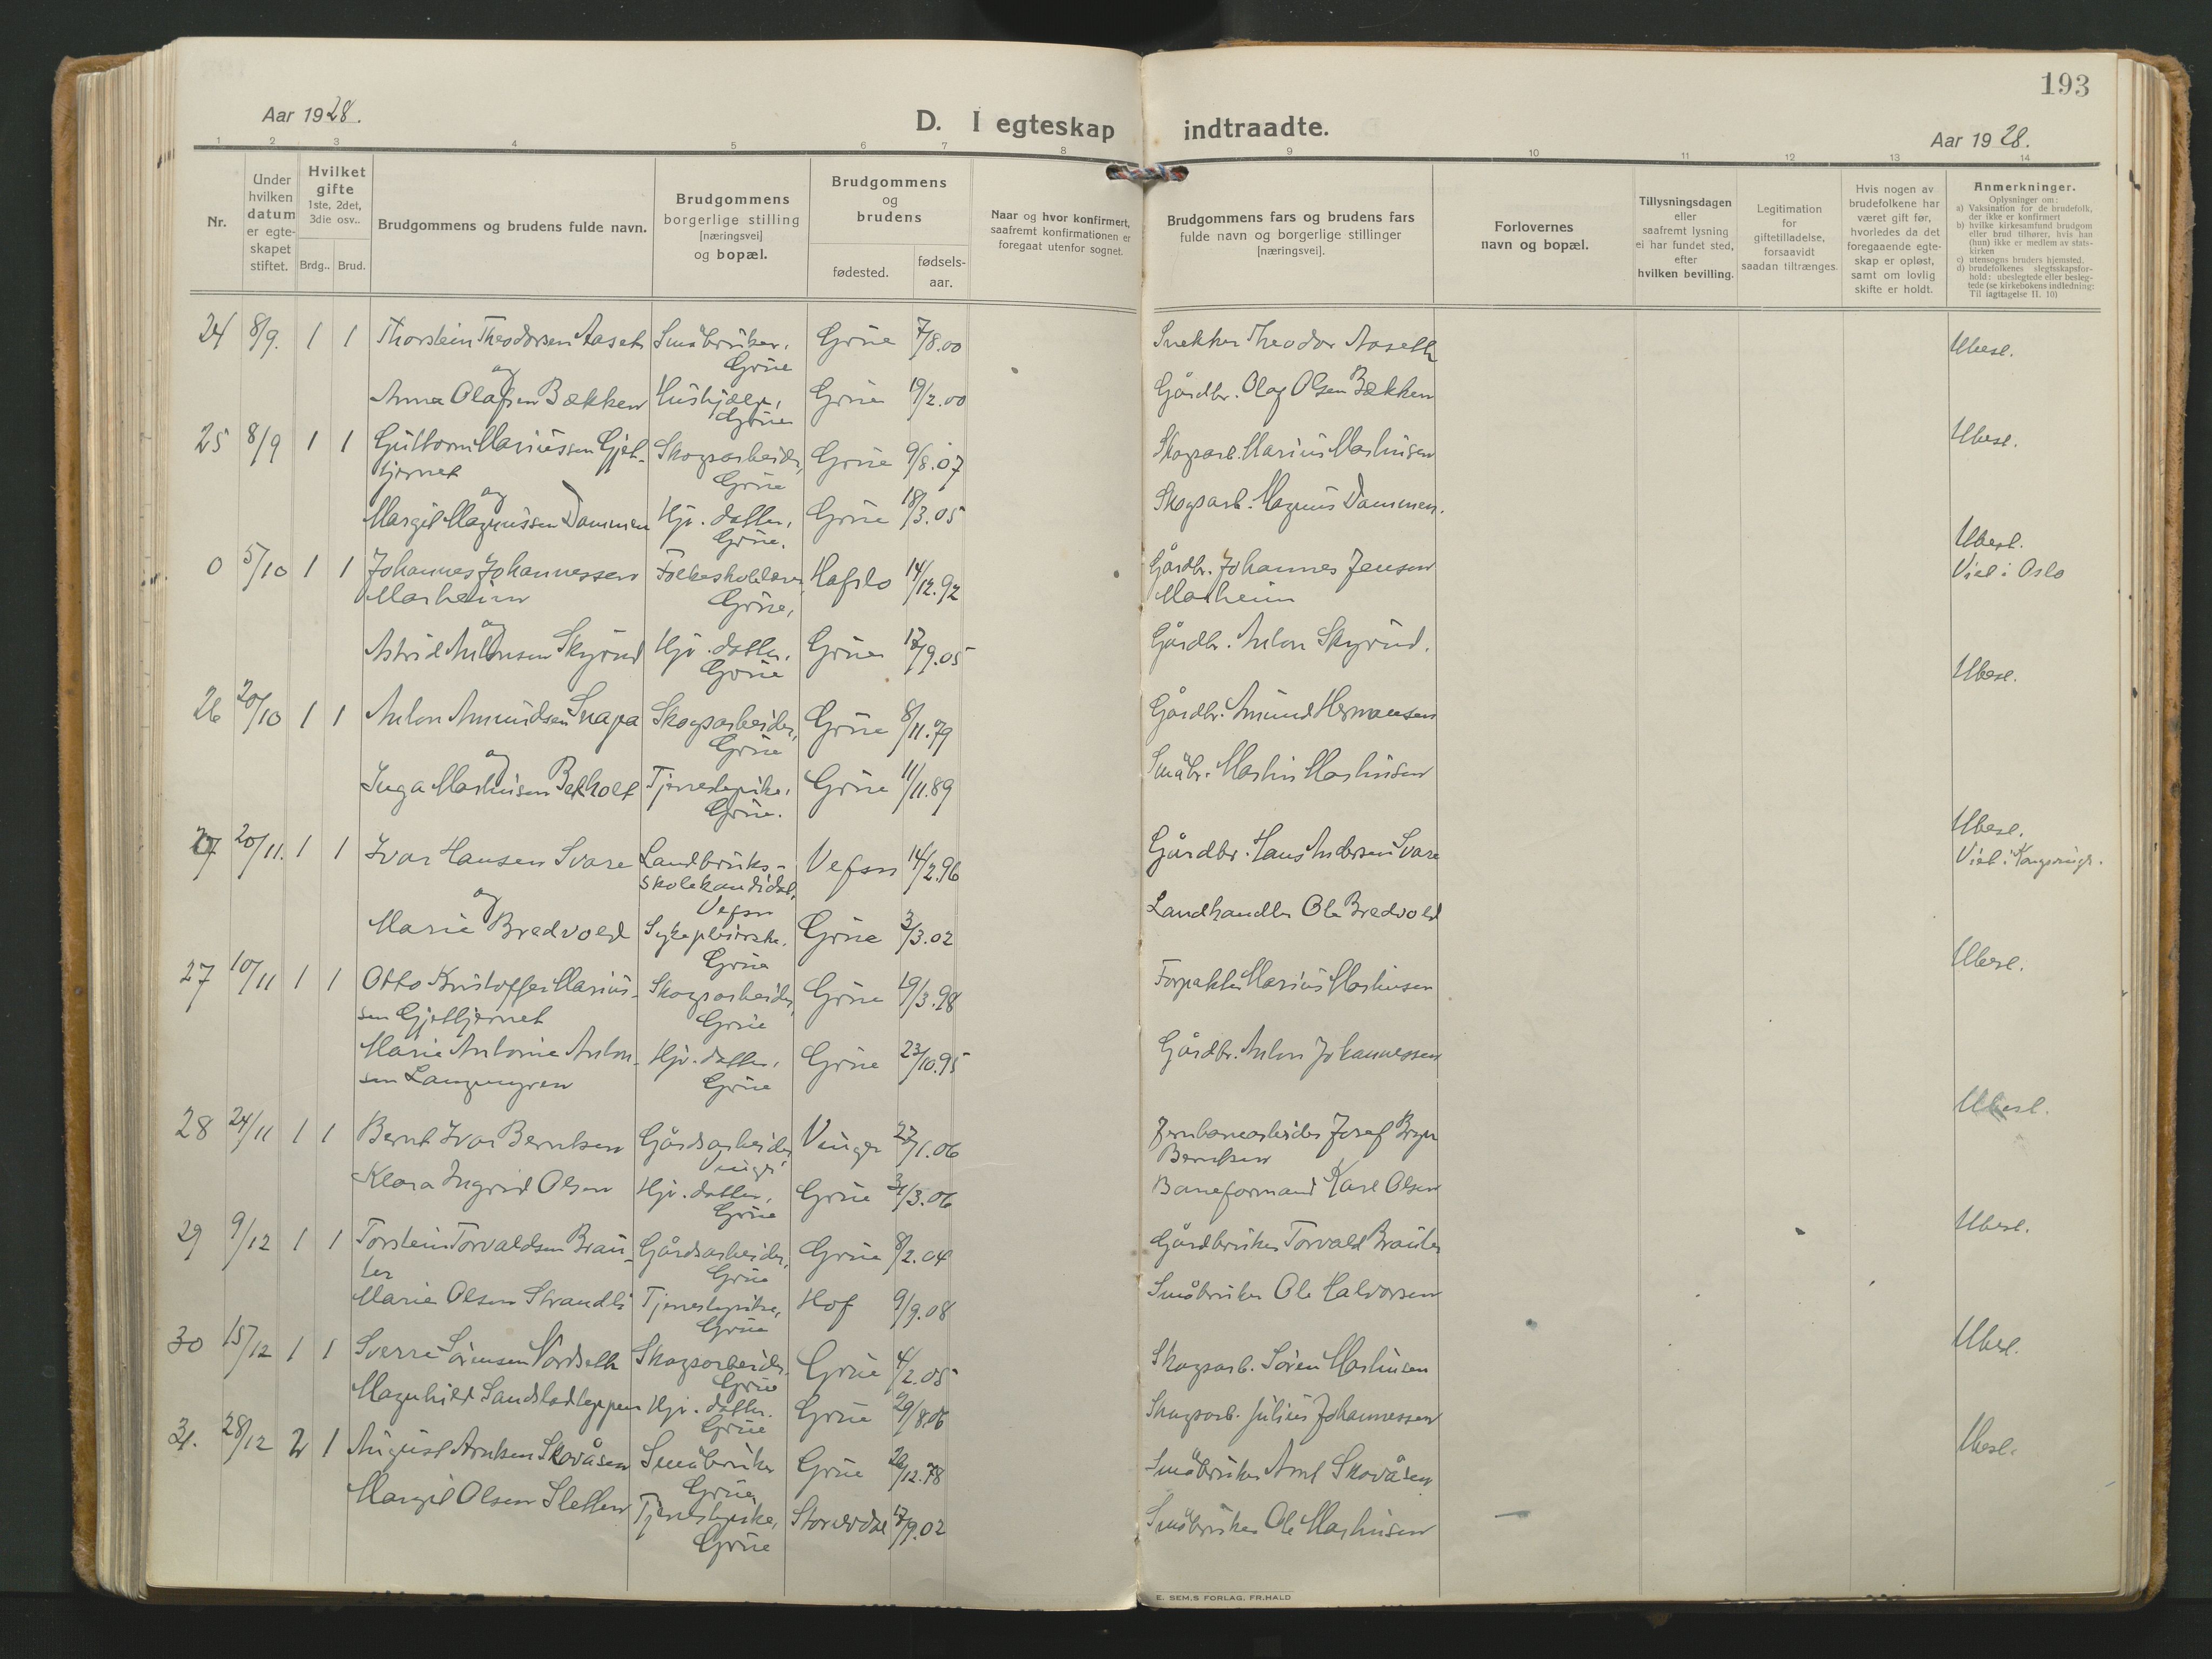 193
Aar 1928.
D. I egteskap indtraadte.
Aar 1928.
1 2 3 4 5 6 7 8 9 10 11 12 13 14
Nr.
Under hvilken datum er egteskapet stiftet.
Hvilket gifte 1ste, 2det, 3die osv..
Brdg.. Brud.
Brudgommens og brudens fulde navn.
Brudgommens borgerlige stilling [næringsvei] og bopæl.
Brudgommens og brudens
fødested.
fødselsaar.
Naar og hvor konfirmert, saafremt konfirmationen er foregaat utenfor sognet.
Brudgommens fars og brudens fars fulde navn og borgerlige stillinger [næringsvei].
Forlovernes navn og bopæl.
Tillysningsdagen eller saafremt lysning ei har fundet sted, efter hvilken bevilling.
Legitimation for giftetilladelse, forsaavidt saadan tiltrænges.
Hvis nogen av brudefolkene har været gift før, hvorledes da det foregaaende egteskap er opløst, samt om lovlig skifte er holdt.
Anmerkninger.
Oplysninger om:
a) Vaksination for de brudefolk, der ikke er konfirmert
b) hvilke kirkesamfund brudgom eller brud tilhører, hvis han (hun) ikke er medlem av statskirken
c) utensogns bruders hjemsted.
d) brudefolkenes slegtsskapsforhold: ubeslegtede eller beslegtede (se kirkebokens indledning: Til iagttagelse II. 10)
24 8/9. 1 1 Thorstein Theodorsen Aaseth Småbruker, Grue Grue 7/8.00 Snekker Theodor Aaseth Ubesl.
og
Anna Olafsen Bækken Hushjælp, Grue Grue 19/2.00 Gårdbr. Olaf Olsen Bækken
25 8/9 1 1 Guttorm Mariussen Gjettjernet Skogsarbeider, Grue Grue 9/8.07 Skogsarb. Marius Martinsen Ubesl.
og
Margit Magnussen Dammen Hjv. datter, Grue. Grue 18/3.05 Skogsarb. Magnus Dammen.
0 5/10 1 1 Johannes Johannessen Marheim Folkeskolelærer, Grue, Hafslo 14/12.92 Gårdbr. Johannes Jensen Marheim Ubesl. Viet i Oslo
og
Astrid Antonsen Skyrud Hjv. datter, Grue Grue 17/9.05 Gårdbr. Anton Skyrud.
26 20/10 1 1 Anton Amundsen Snapa Skogsarbeider, Grue Grue 8/11.79 Gårdbr. Amund Hermansen Ubesl.
og
Inga Martinsen Bekholt Tjenestepike, Grue. Grue 11/11.89 Småbr. Martin Martinsen
20/11. 1 1 Ivar Hansen Svare Landbruksskolekandidat, Vefsn Vefsn 14/2.96 Gårdbr. Hans Andersen Svare Ubesl. Viet i Kongsvinger.
og
Marie Bredvold Sykepleierske, Grue Grue 3/3.02 Landhandler Ole Bredvold
27 10/11 1 1 Otto Kristoffer Mariussen Gjettjernet Skogsarbeider, Grue Grue 19/3.98 Forpakter Marius Martinsen Ubesl.
Marie Antonie Antonsen Langmyren Hjv. datter, Grue Grue 23/10.95 Gårdbr. Anton Johannessen
28 24/11 1 1 Bernt Ivar Berntsen Gårdsarbeider, Vinger Vinger 27/1.06 Jernbanearbeider Josef Berntsen Ubesl.
Klara Ingrid Olsen Hjv. datter, Grue Grue 31/3.06 Baneformand Karl Olsen
29 9/12 1 1 Torstein Torvaldsen Brauter Gårdsarbeider, Grue Grue 8/2.04 Gårdbruker Torvald Brauter Ubesl.
Marie Olsen Strandli Tjenestepike, Grue Hof 9/9.08 Småbruker Ole Halvorsen
30 15/12 1 1 Sverre Sørensen Nordseth Skogsarbeider, Grue Grue 4/2.05 Skogsarb. Søren Martinsen Ubesl.
Magnhild Sandsladteppen Hjv. datter. Grue Grue 29/8.06 Skogsarb. Julius Johannessen
31. 28/12 2 1 August Arntsen Skovåsen Småbruker Grue, Grue 26/12.78 Småbruker Arnt Skovåsen Ubesl.
Margit Olsen Sletten Tjenestepike, Grue Storelvdal 17/9.02 Småbruker Ole Martinsen
E. SEM,S FORLAG, FR.HALD